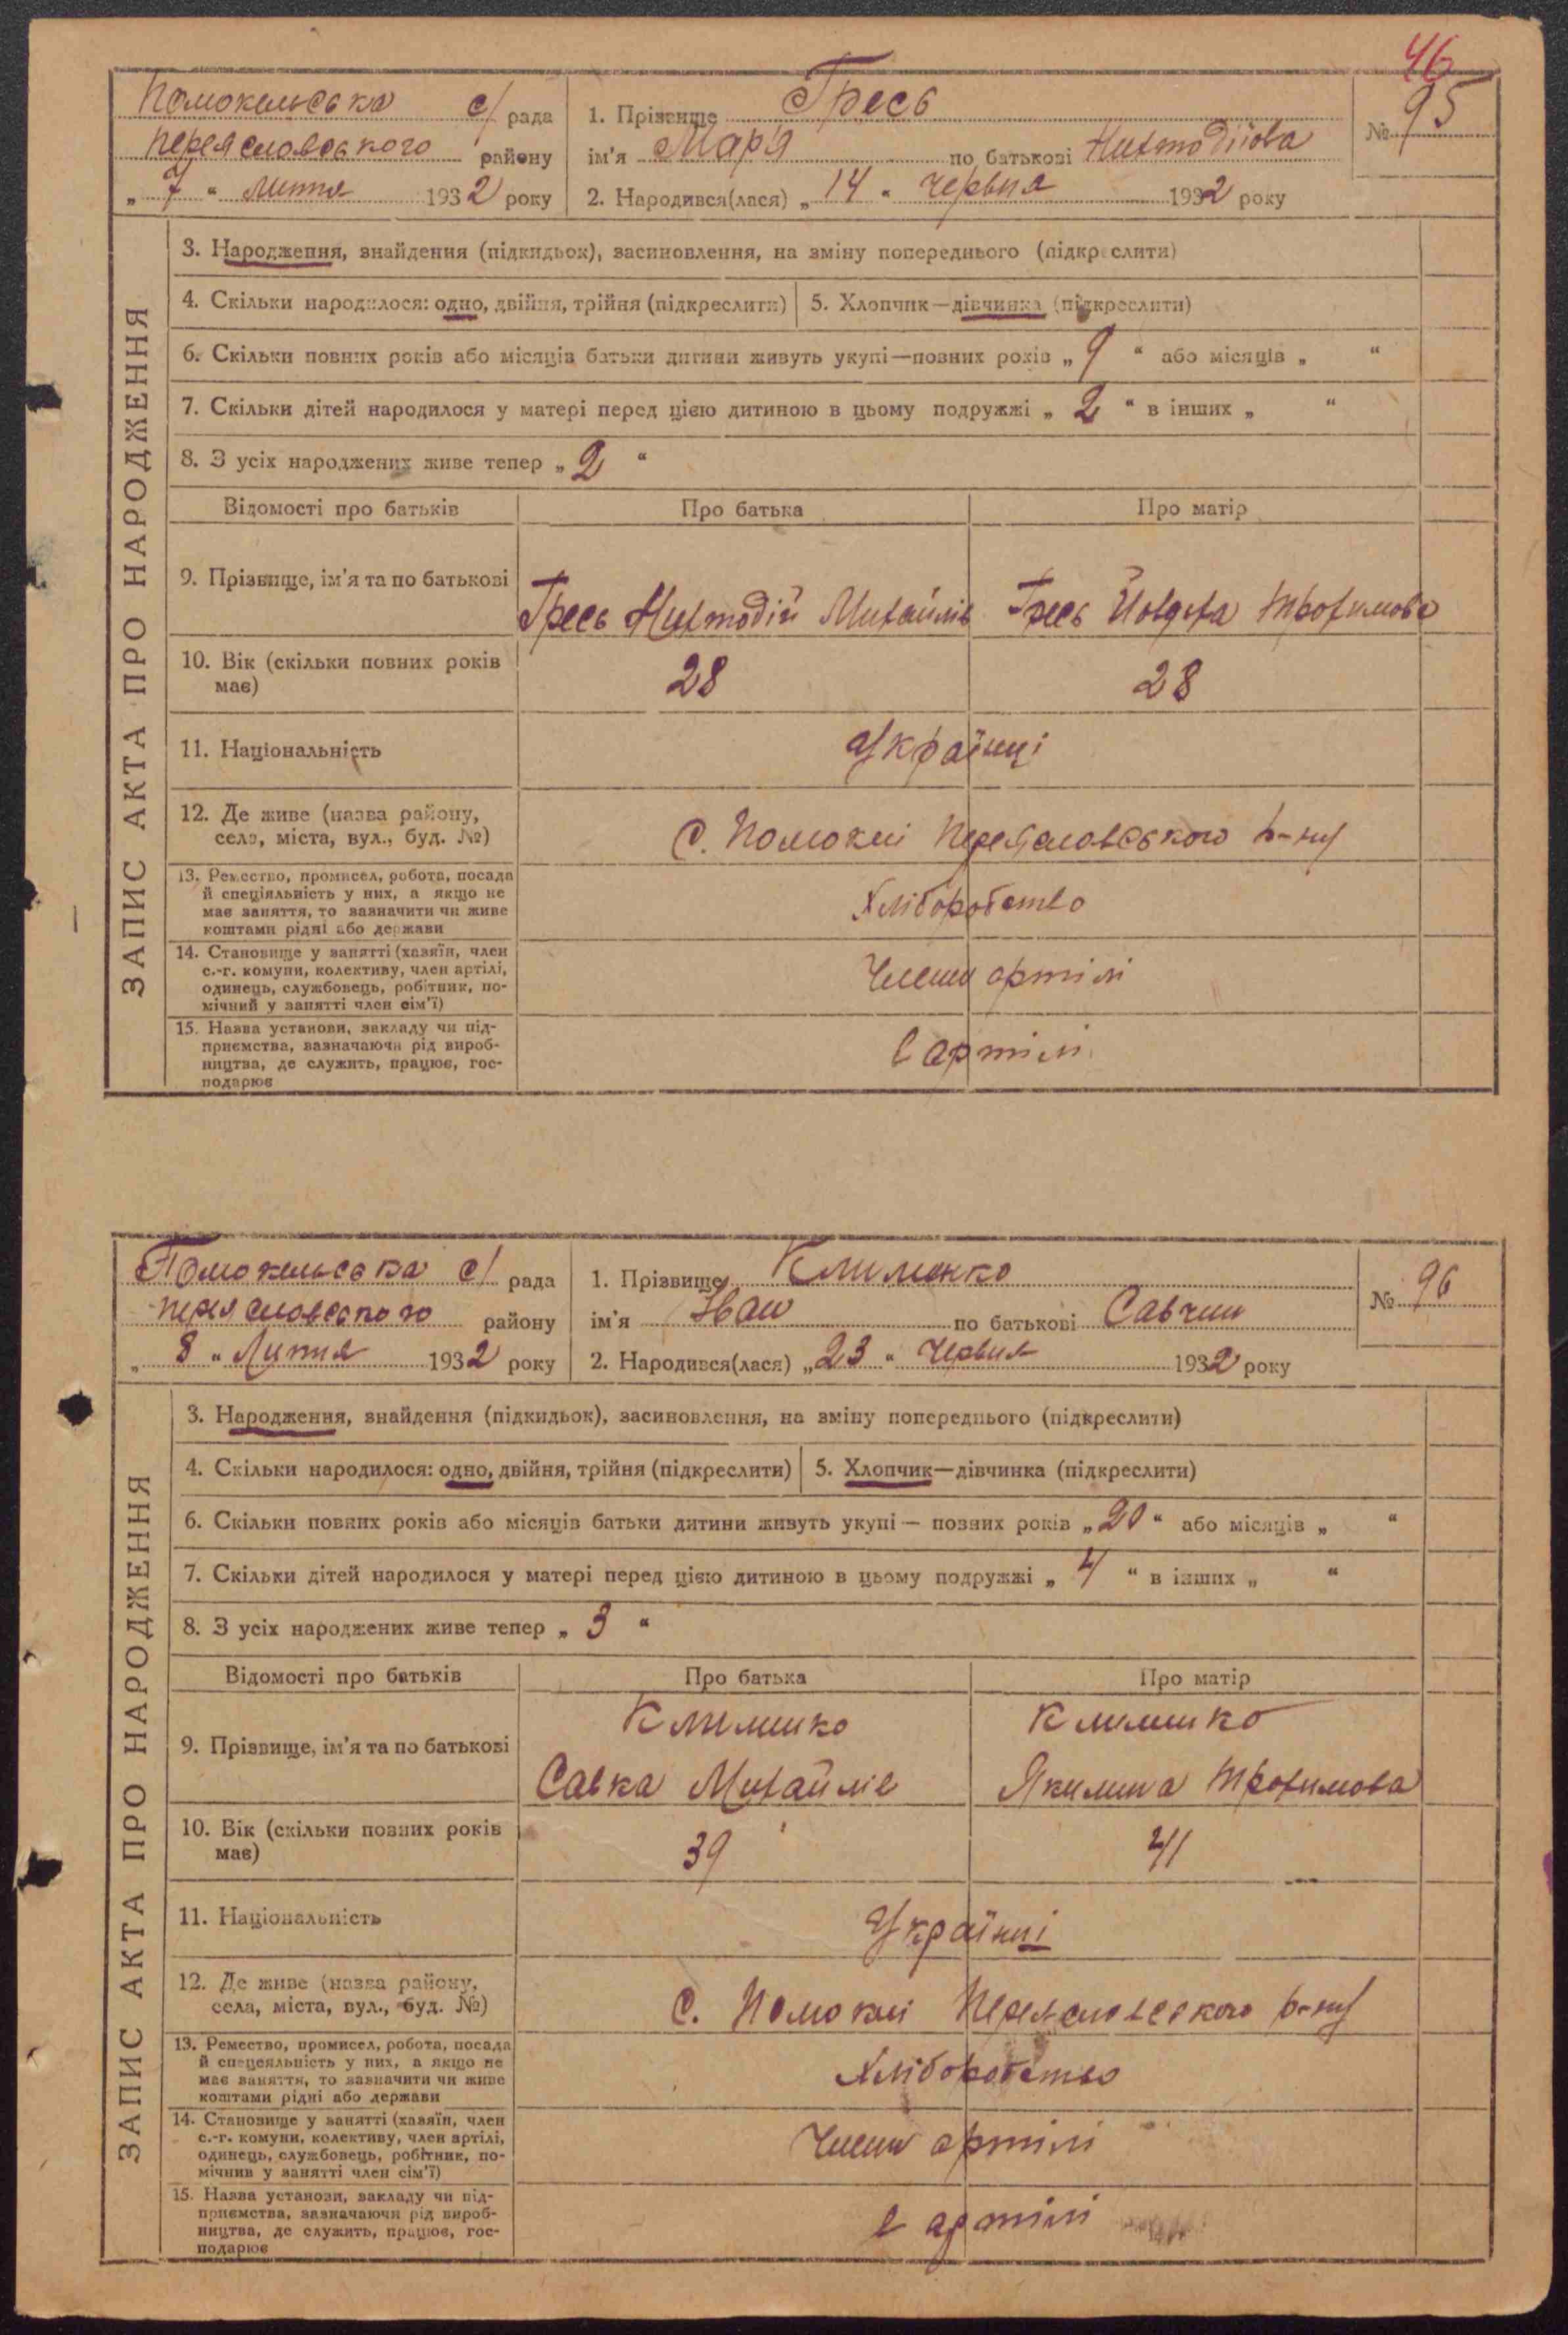 46
Помокельська с/ рада
Переяславського району
„ 7 “ липня 1932 року
1. Прізвище Гресь
ім'я Мар'я по батькові
2. Народився(лася) „ 14 “ червня 1932 року
№ 95
ЗАПИС АКТА ПРО НАРОДЖЕННЯ
3. Народження, знайдення (підкидьок), засиновлення, на зміну попереднього (підкреслити)
4. Скільки народилося: одно, двійня, трійня (підкреслити)
5. Хлопчик—дівчинка (підкреслити)
6. Скільки повних років або місяців батьки дитини живуть укупі—повних років „ 9 “ або місяців „ “
7. Скільки дітей народилося у матері перед цією дитиною в цьому подружжі „ 2 “ в інших „ “
8. З усіх народжених живе тепер „ 2 “
Відомості про батьків
Про батька
Про матір
9. Прізвище, ім'я та по батькові
Гресь Михайлів
Гресь Трохимова
10. Вік (скільки повних років
має)
28
28
11. Національність
Українці
12. Де живе (назва району,
села, міста, вул., буд. №)
с. Помоклі Переяславського р-ну
13. Ремество, промисел, робота, посада
й спеціяльність у них, а якщо не
має заняття, то зазначити чи живе
коштами рідні або держави
Хліборобство
14. Становище у занятті (хазяїн, член
с.-г. комуни, колективу, член артілі,
одинець, службовець, робітник, по-
мічний у занятті член сім'ї)
Члени артілі
15. Назва установи, закладу чи під-
приємства, зазначаючи рід вироб-
ництва, де служить, працює, гос-
подарює
в артілі
Помокельська с/ рада
Переяславського району
„ 8 “ Липня 1932 року
1. Прізвище Клименко
ім'я Іван по батькові Савчин
2. Народився(лася) „ 23 “ червня 1932 року
№ 96
ЗАПИС АКТА ПРО НАРОДЖЕННЯ
3. Народження, знайдення (підкидьок), засиновлення, на зміну попереднього (підкреслити)
4. Скільки народилося: одно, двійня, трійня (підкреслити)
5. Хлопчик—дівчинка (підкреслити)
6. Скільки повних років або місяців батьки дитини живуть укупі — повних років „ 20 “ або місяців „ “
7. Скільки дітей народилося у матері перед цією дитиною в цьому подружжі „ 4 “ в інших „ “
8. З усіх народжених живе тепер „ 3 “
Відомості про батьків
Про батька
Про матір
9. Прізвище, ім'я та по батькові
Клименко
Савка Михайлів
Клименко
Якилина Трохимова
10. Вік (скільки повних років
має)
39
41
11. Національність
Українці
12. Де живе (назва району,
села, міста, вул., буд. №)
с. Помоклі Переяславського р-ну
13. Ремество, промисел, робота, посада
й спецеяльність у них, а якщо не
має заняття, то зазначити чи живе
коштами рідні або держави
Хліборобство
14. Становище у занятті (хазяїн, член
с.-г. комуни, колективу, член артілі,
одинець, службовець, робітник, по-
мічнив у занятті член сім'ї)
Члени артілі
15. Назва установи, закладу чи під-
приємства, зазначаючи рід вироб-
ництва, де служить, працює, гос-
подарює
в артілі